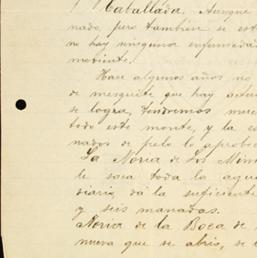 Caballada. Aunque
nado, pero tambien se est
no hay ninguna enfermeda
mediente.
Hace algunos años no
de mesquite que hay actu
se logra, tendremos mue
todo este monte, y la co
nados de pelo lo aprobe
La Noria de Los Mim
le saca toda la agu
diario, dá la suficiente
y seis manadas.
Noria de la Boca de
nueva que se abrió, se e